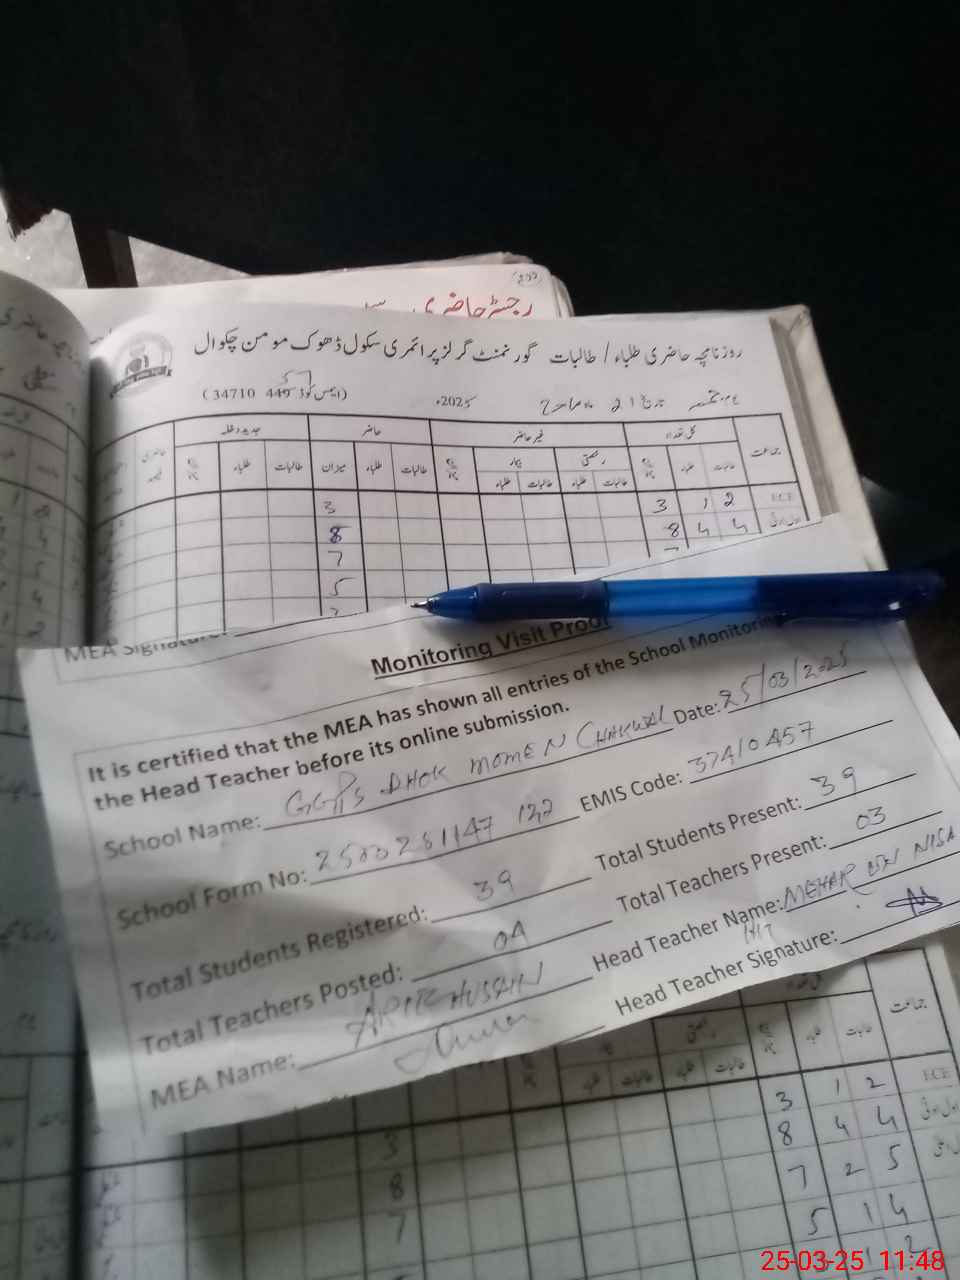 رجسٹر حاضری
روزنامچہ حاضری طلباء / طالبات گورنمنٹ گرلز پرائمری سکول ڈھوک مومن چکوال
(ایمس کوڈ 449 34710)
تاریخ 21 ماہ مارچ 2025ء
جماعت کل تعداد غیر حاضر حاضر جدید داخلہ
طالبات طلباء رخصتی بیمار طالبات طلباء میزان طالبات طلباء
طالبات طلباء طالبات طلباء
ECE 2 1 3 3
4 4 8 8
7
5
MEA Signature:
Monitoring Visit Proof
It is certified that the MEA has shown all entries of the School Monitoring
the Head Teacher before its online submission.
School Name: GGPS DHOK MOMEN CHAKWAL Date: 25/03/2025
School Form No: 2500281147 122 EMIS Code: 37410457
Total Students Registered: 39 Total Students Present: 39
Total Teachers Posted: 04 Total Teachers Present: 03
MEA Name: HUSSAIN Head Teacher Name: MEHAR UN NISA
Head Teacher Signature:
جماعت
طالبات طلباء
طالبات طلباء طالبات طلباء
ECE 2 1 3 3
4 4 8 8
5 2 7 7
4 1 5
2
25-03-25 11:48